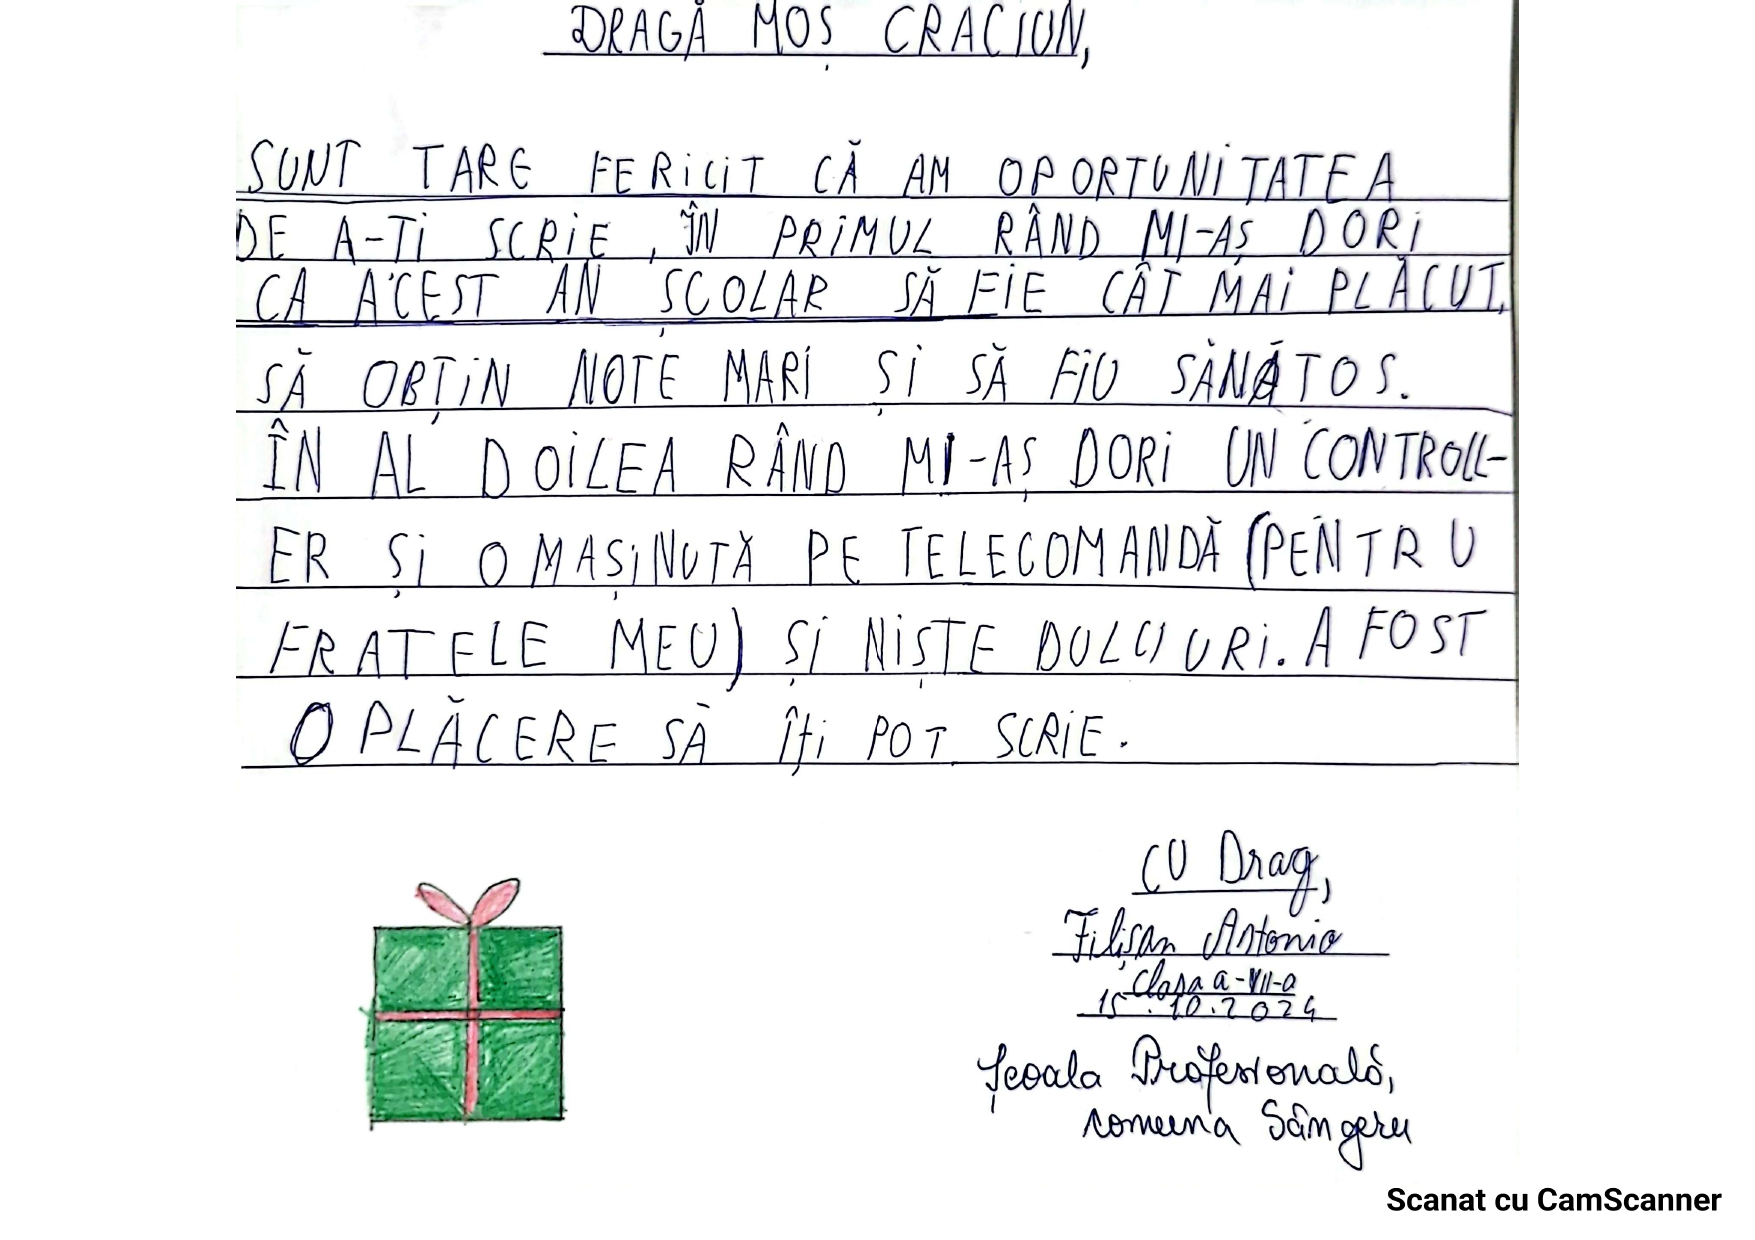 DRAGĂ MOȘ CRACIUN,
SUNT TARE FERICIT CĂ AM OPORTUNITATEA
DE A-TI SCRIE, ÎN PRIMUL RÂND MI-AȘ DORI
CA ACEST AN ȘCOLAR SĂ FIE CÂT MAI PLĂCUT,
SĂ OBȚIN NOTE MARI ȘI SĂ FIU SĂNĂTOS.
ÎN AL DOILEA RÂND MI-AȘ DORI UN CONTROLL-
ER ȘI O MAȘINUTĂ PE TELECOMANDĂ (PENTRU
FRATELE MEU) ȘI NIȘTE DULCIURI. A FOST
O PLĂCERE SĂ ÎȚI POT SCRIE.
CU Drag,
Filișan Antonio
Clasa a-VII-a
15.10.2024
Școala Profesională,
comuna Sângeru
Scanat cu CamScanner